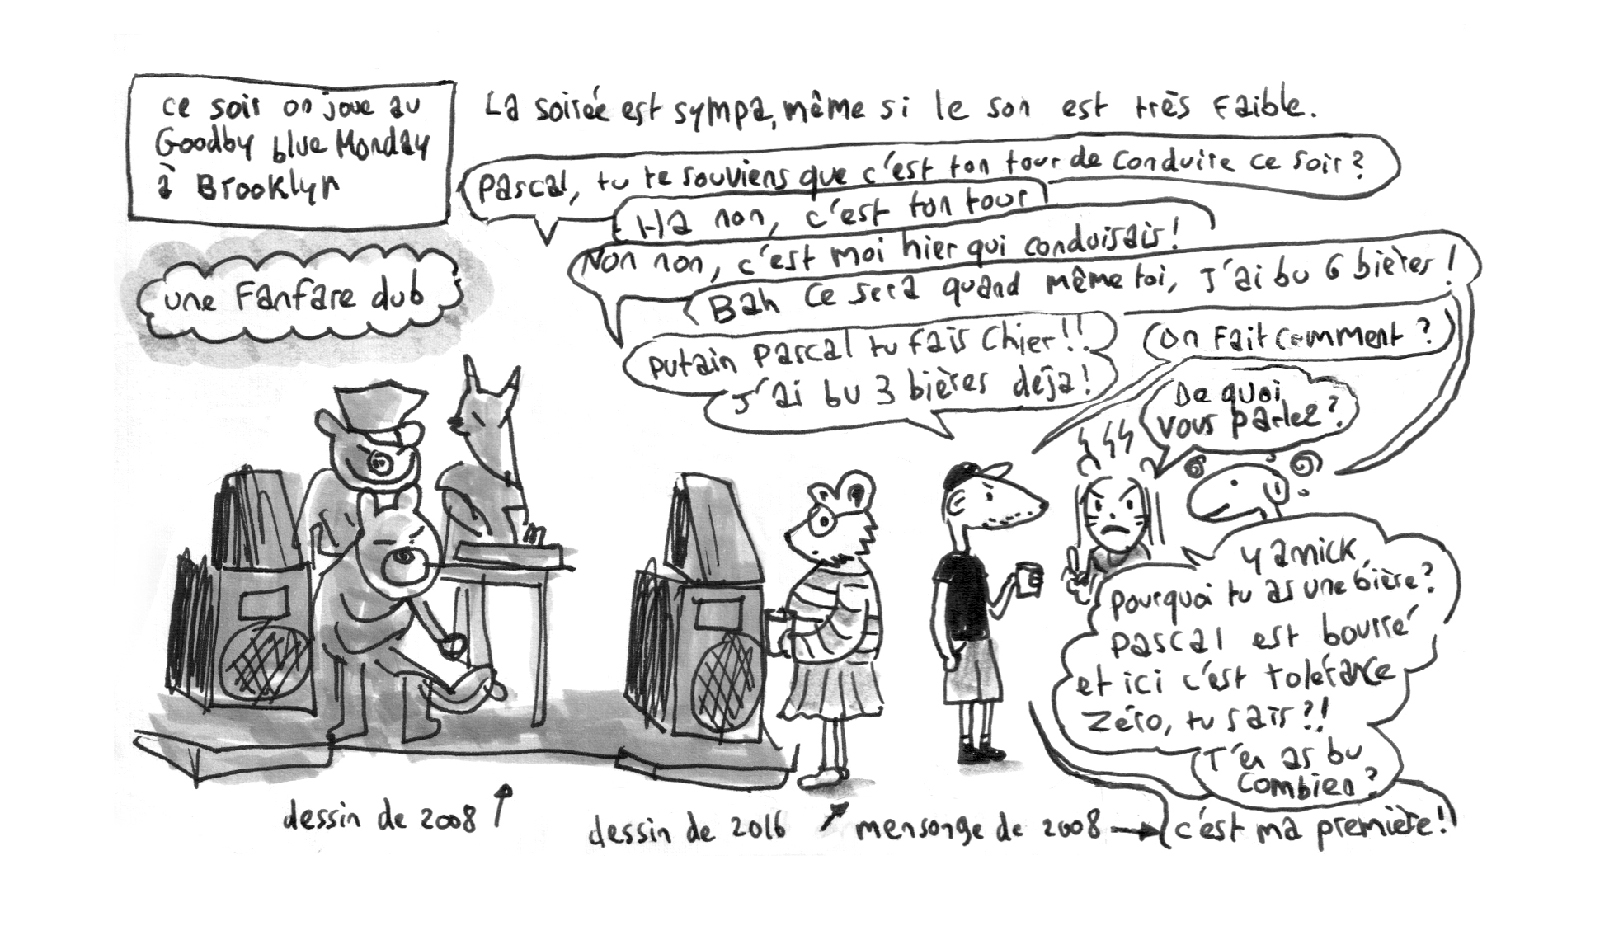 ce soir on joue au
Goodby blue Monday
à Brooklyn
La soirée est sympa, même si le son est très faible.
Pascal, tu te souviens que c'est ton tour de conduire ce soir ?
Ha non, c'est ton tour
Non non, c'est moi hier qui conduisais !
Bah ce sera quand même toi, J'ai bu 6 bières !
une fanfare dub
Putain Pascal tu fais chier !!
J'ai bu 3 bières deja !
On fait comment ?
De quoi
vous parlez ?
Yannick,
pourquoi tu as une bière ?
Pascal est bourré
et ici c'est tolérance
zéro, tu sais ?!
T'en as bu
combien ?
c'est ma première !
dessin de 2008
dessin de 2016
mensonge de 2008